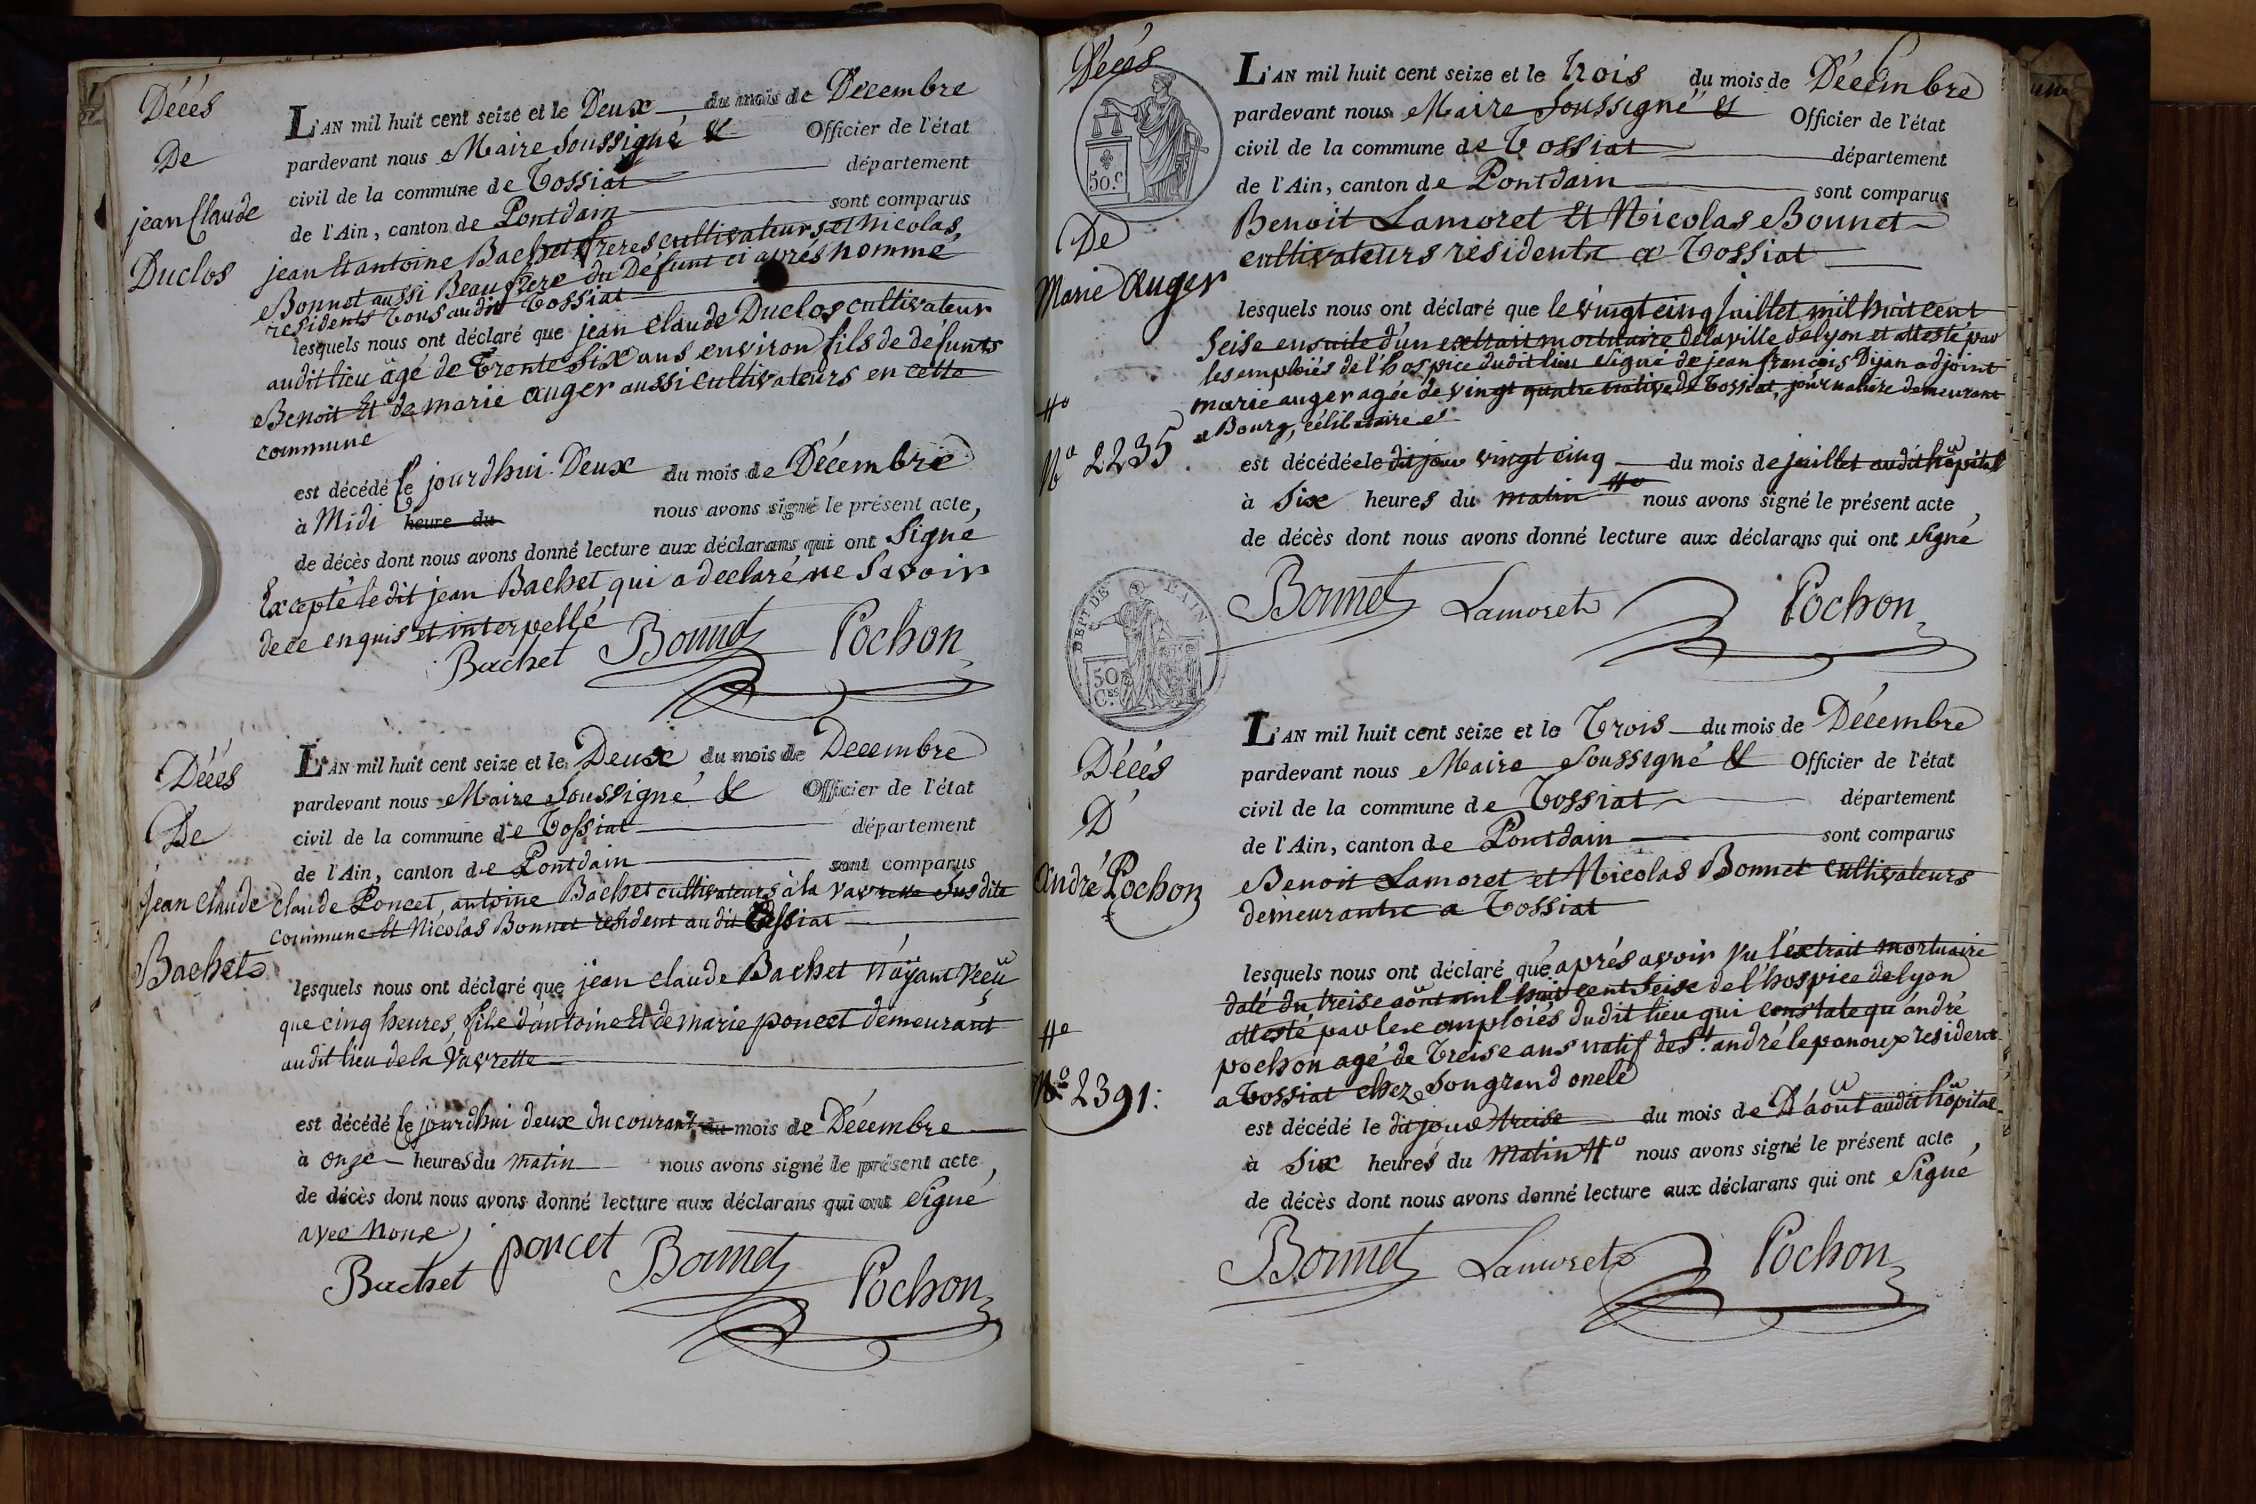 Décés
De
jean Claude
Duclos
L'AN mil huit cent seize et le Deux du mois de Décembre
pardevant nous Maire Soussigné & Officier de l'état
civil de la commune de Tossiat département
de l'Ain, canton de Pontdain sont comparus
jean Et antoine Bachet freres cultivateurs et Nicolas
Bonnet aussi Beaufrere du Défunt ci aprés nommé
residents Tous audit Tossiat
lesquels nous ont déclaré que jean Claude Duclos cultivateur
audit lieu agé de Trente Six ans environ fils de défunts
Benoit Et de marie auger aussi cultivateurs en cette
commune
est décédé le jourdhui Deux du mois de Décembre
à Midi heure du nous avons signé le présent acte,
de décès dont nous avons donné lecture aux déclarans qui ont Signé
Excepté le dit jean Bachet qui a declaré ne Savoir
de ce enquis et interpellé
Bachet Bonnet Pochon
Décés
De
jean Claude
Bachet
L'AN mil huit cent seize et le Deux du mois de Decembre
pardevant nous Maire Soussigné & Officier de l'état
civil de la commune de Tossiat département
de l'Ain, canton de Pontdain sont comparus
Claude Poncet, antoine Bachet cultivateurs à la Vavrette Susdite
commune Et Nicolas Bonnet resident audit Tossiat
lesquels nous ont déclaré que jean Claude Bachet N'ayant Veçu
que cinq heures, fils d'antoine Et de marie poncet demeurant
audit lieu de la Vavrette
est décédé le jourdhui deux du courant du mois de Décembre
à onze heures du matin nous avons signé le présent acte,
de décès dont nous avons donné lecture aux déclarans qui ont Signé
avec Nous
Bachet poncet Bonnet Pochon
Décés
50.c
De
Marie Auger
L'AN mil huit cent seize et le Trois du mois de Décembre
pardevant nous Maire Soussigné & Officier de l'état
civil de la commune de Tossiat département
de l'Ain, canton de Pontdain sont comparus
Benoit Lamoret Et Nicolas Bonnet
cultivateurs residents a Tossiat
lesquels nous ont déclaré que le vingt cinq juillet mil huit cent
Seise ensuite d'un extrait mortuaire de la ville de lyon et attesté par
les emploiés de l'hospice dudit lieu Signé de jean françois Dijan adjoint
marie auger agée de vingt quatre native de Tossiat, journaliere demeurant
a Bourg, célibataire
Nº 2235
est décédée le dit jour vingt cinq du mois de juillet audit hôpital
à Six heures du matin nous avons signé le présent acte,
de décès dont nous avons donné lecture aux déclarans qui ont Signé
Bonnet Lamoret Pochon
DEPT DE L'AIN
50 Ces
Décés
D'
André Pochon
L'AN mil huit cent seize et le Trois du mois de Décembre
pardevant nous Maire Soussigné & Officier de l'état
civil de la commune de Tossiat département
de l'Ain, canton de Pontdain sont comparus
Benoit Lamoret et Nicolas Bonnet cultivateurs
demeurants a Tossiat
lesquels nous ont déclaré que aprés avoir Vu l'extrait mortuaire
daté du treise août mil huit cent Seise de l'hospice de lyon
attesté par les emploiés dudit lieu qui constate qu'andré
pochon agé de Treise ans natif de St. andré le panoux resident
a Tossiat chez Son grand oncle
Nº 2391:
est décédé le dit jour treise du mois de D'août audit hôpital
à Six heures du Matin nous avons signé le présent acte,
de décès dont nous avons donné lecture aux déclarans qui ont Signé
Bonnet Lamoret Pochon